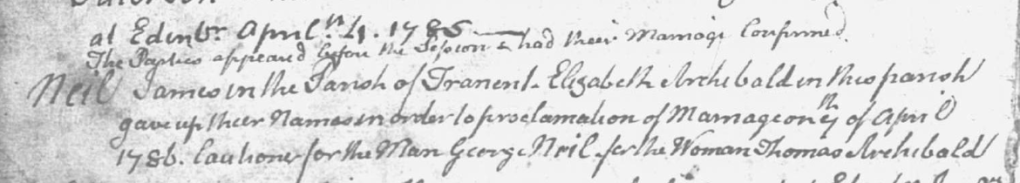 at Edinbr April 4. 1786
The Parties appeared before the Session & had their Marriage Confirmed.
Neil James in the Parish of Tranent & Elizabeth Archibald in this parish
gave up their Names in order to proclamation of Marriage on of April
1786. Cautioner for the Man George Neil for the Woman Thomas Archibald